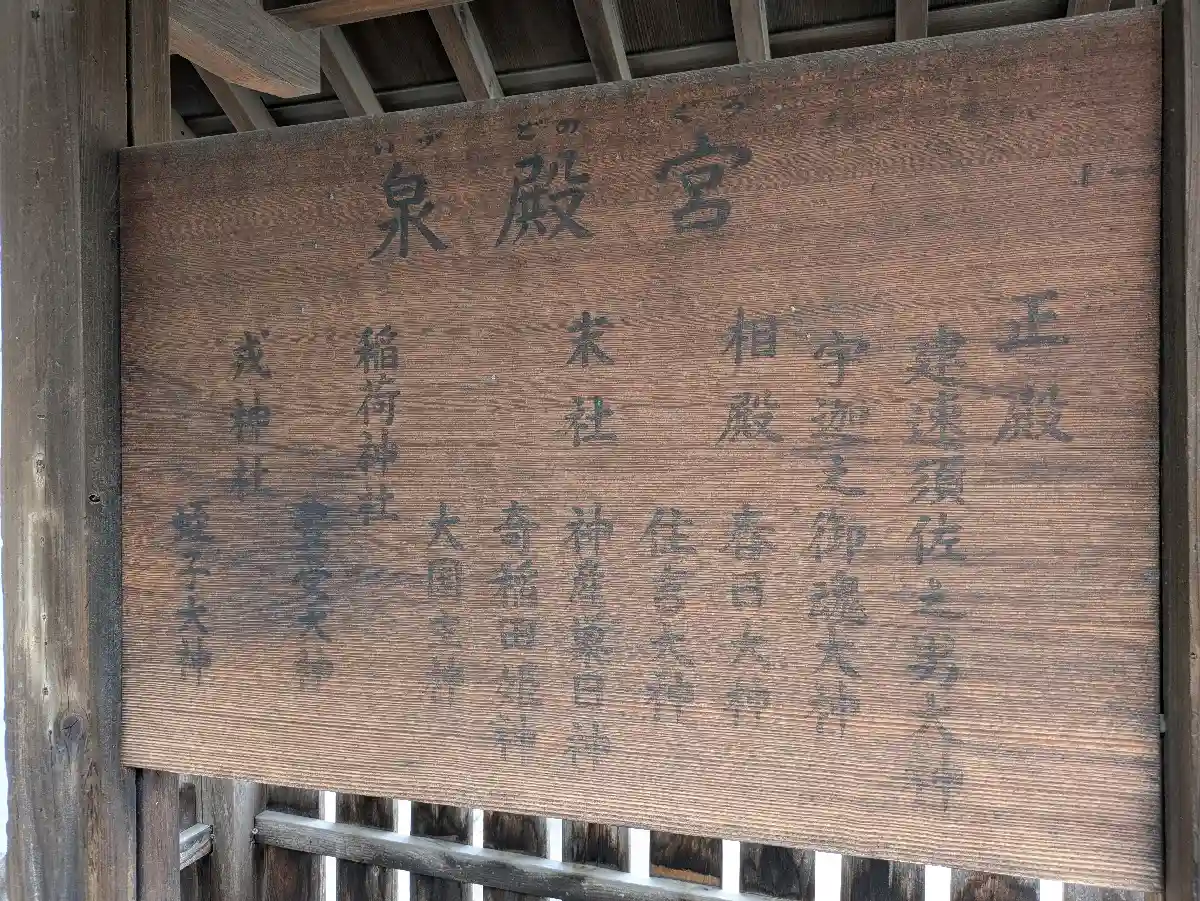 いづ どの ぐう
泉殿宮
正殿
建速須佐之男大神
宇迦之御魂大神
相殿 春日大神
住吉大神
末社 神産巣日神
奇稲田姫神
大国主神
稲荷神社
大神
戎神社
蛭子大神